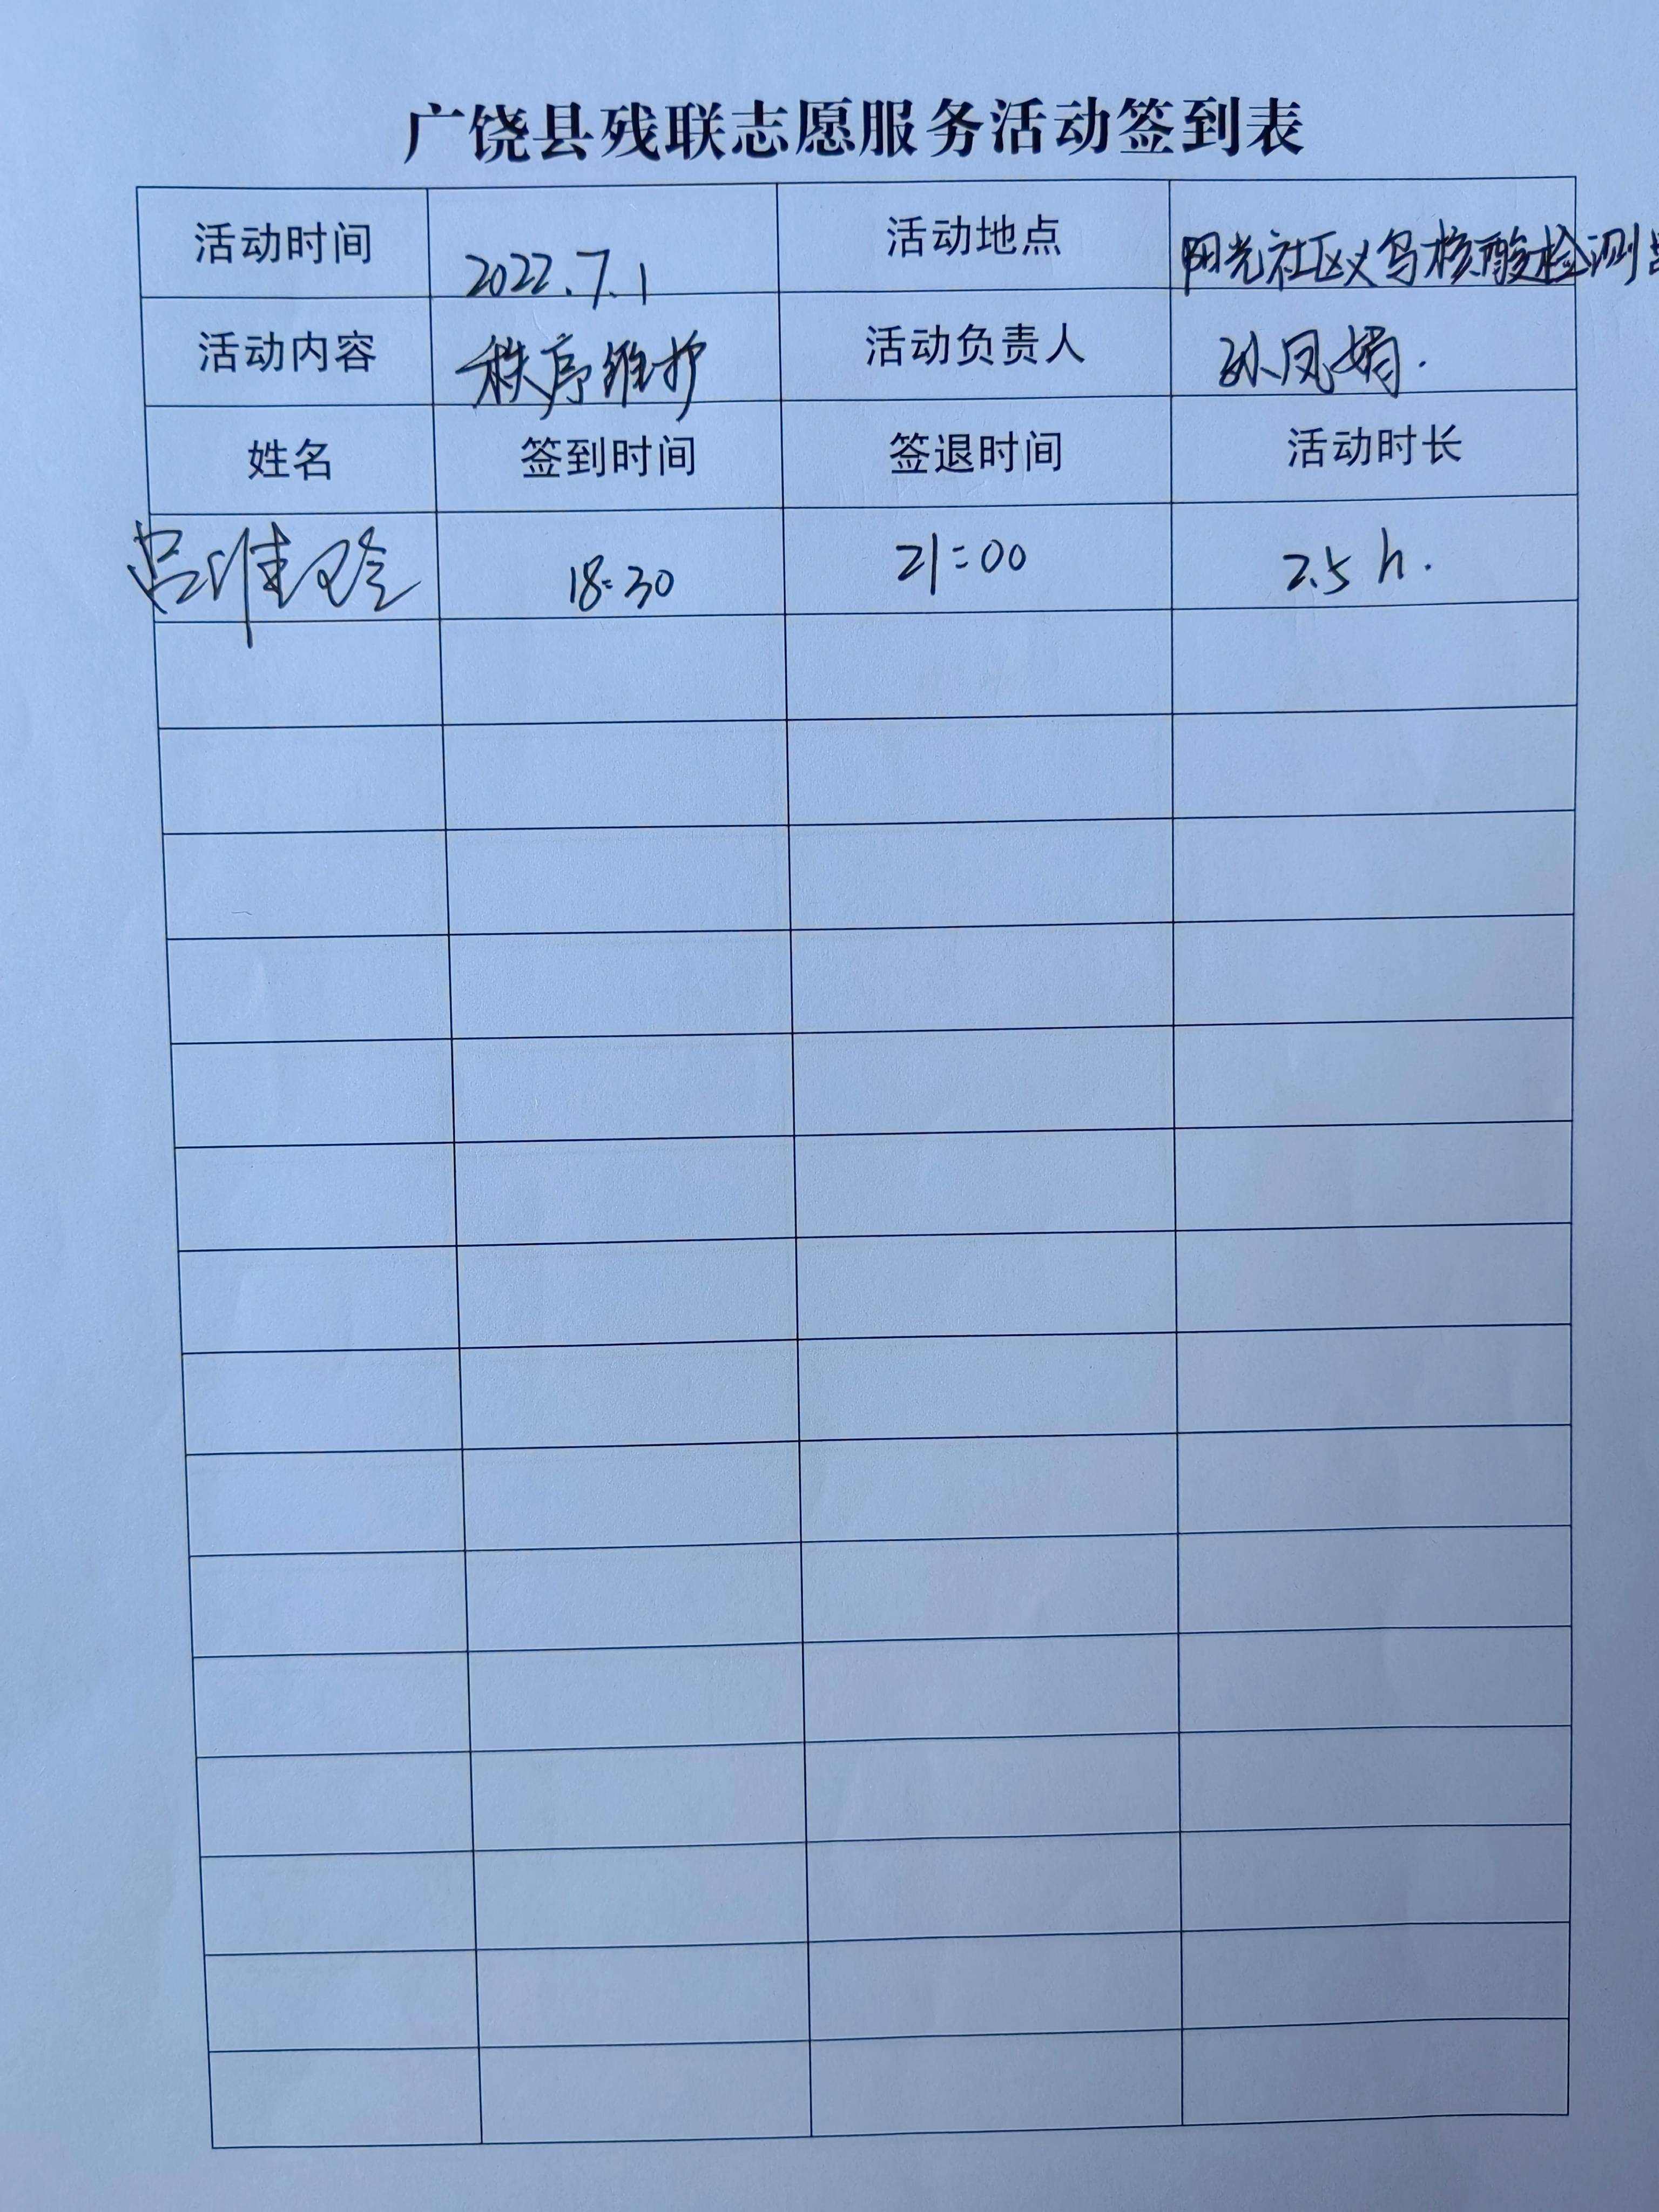 广饶县残联志愿服务活动签到表
活动时间 2022.7.1 活动地点 阳光社区义乌核酸检测
活动内容 秩序维护 活动负责人 孙凤娟.
姓名 签到时间 签退时间 活动时长
吕维玲 18:30 21:00 2.5h.